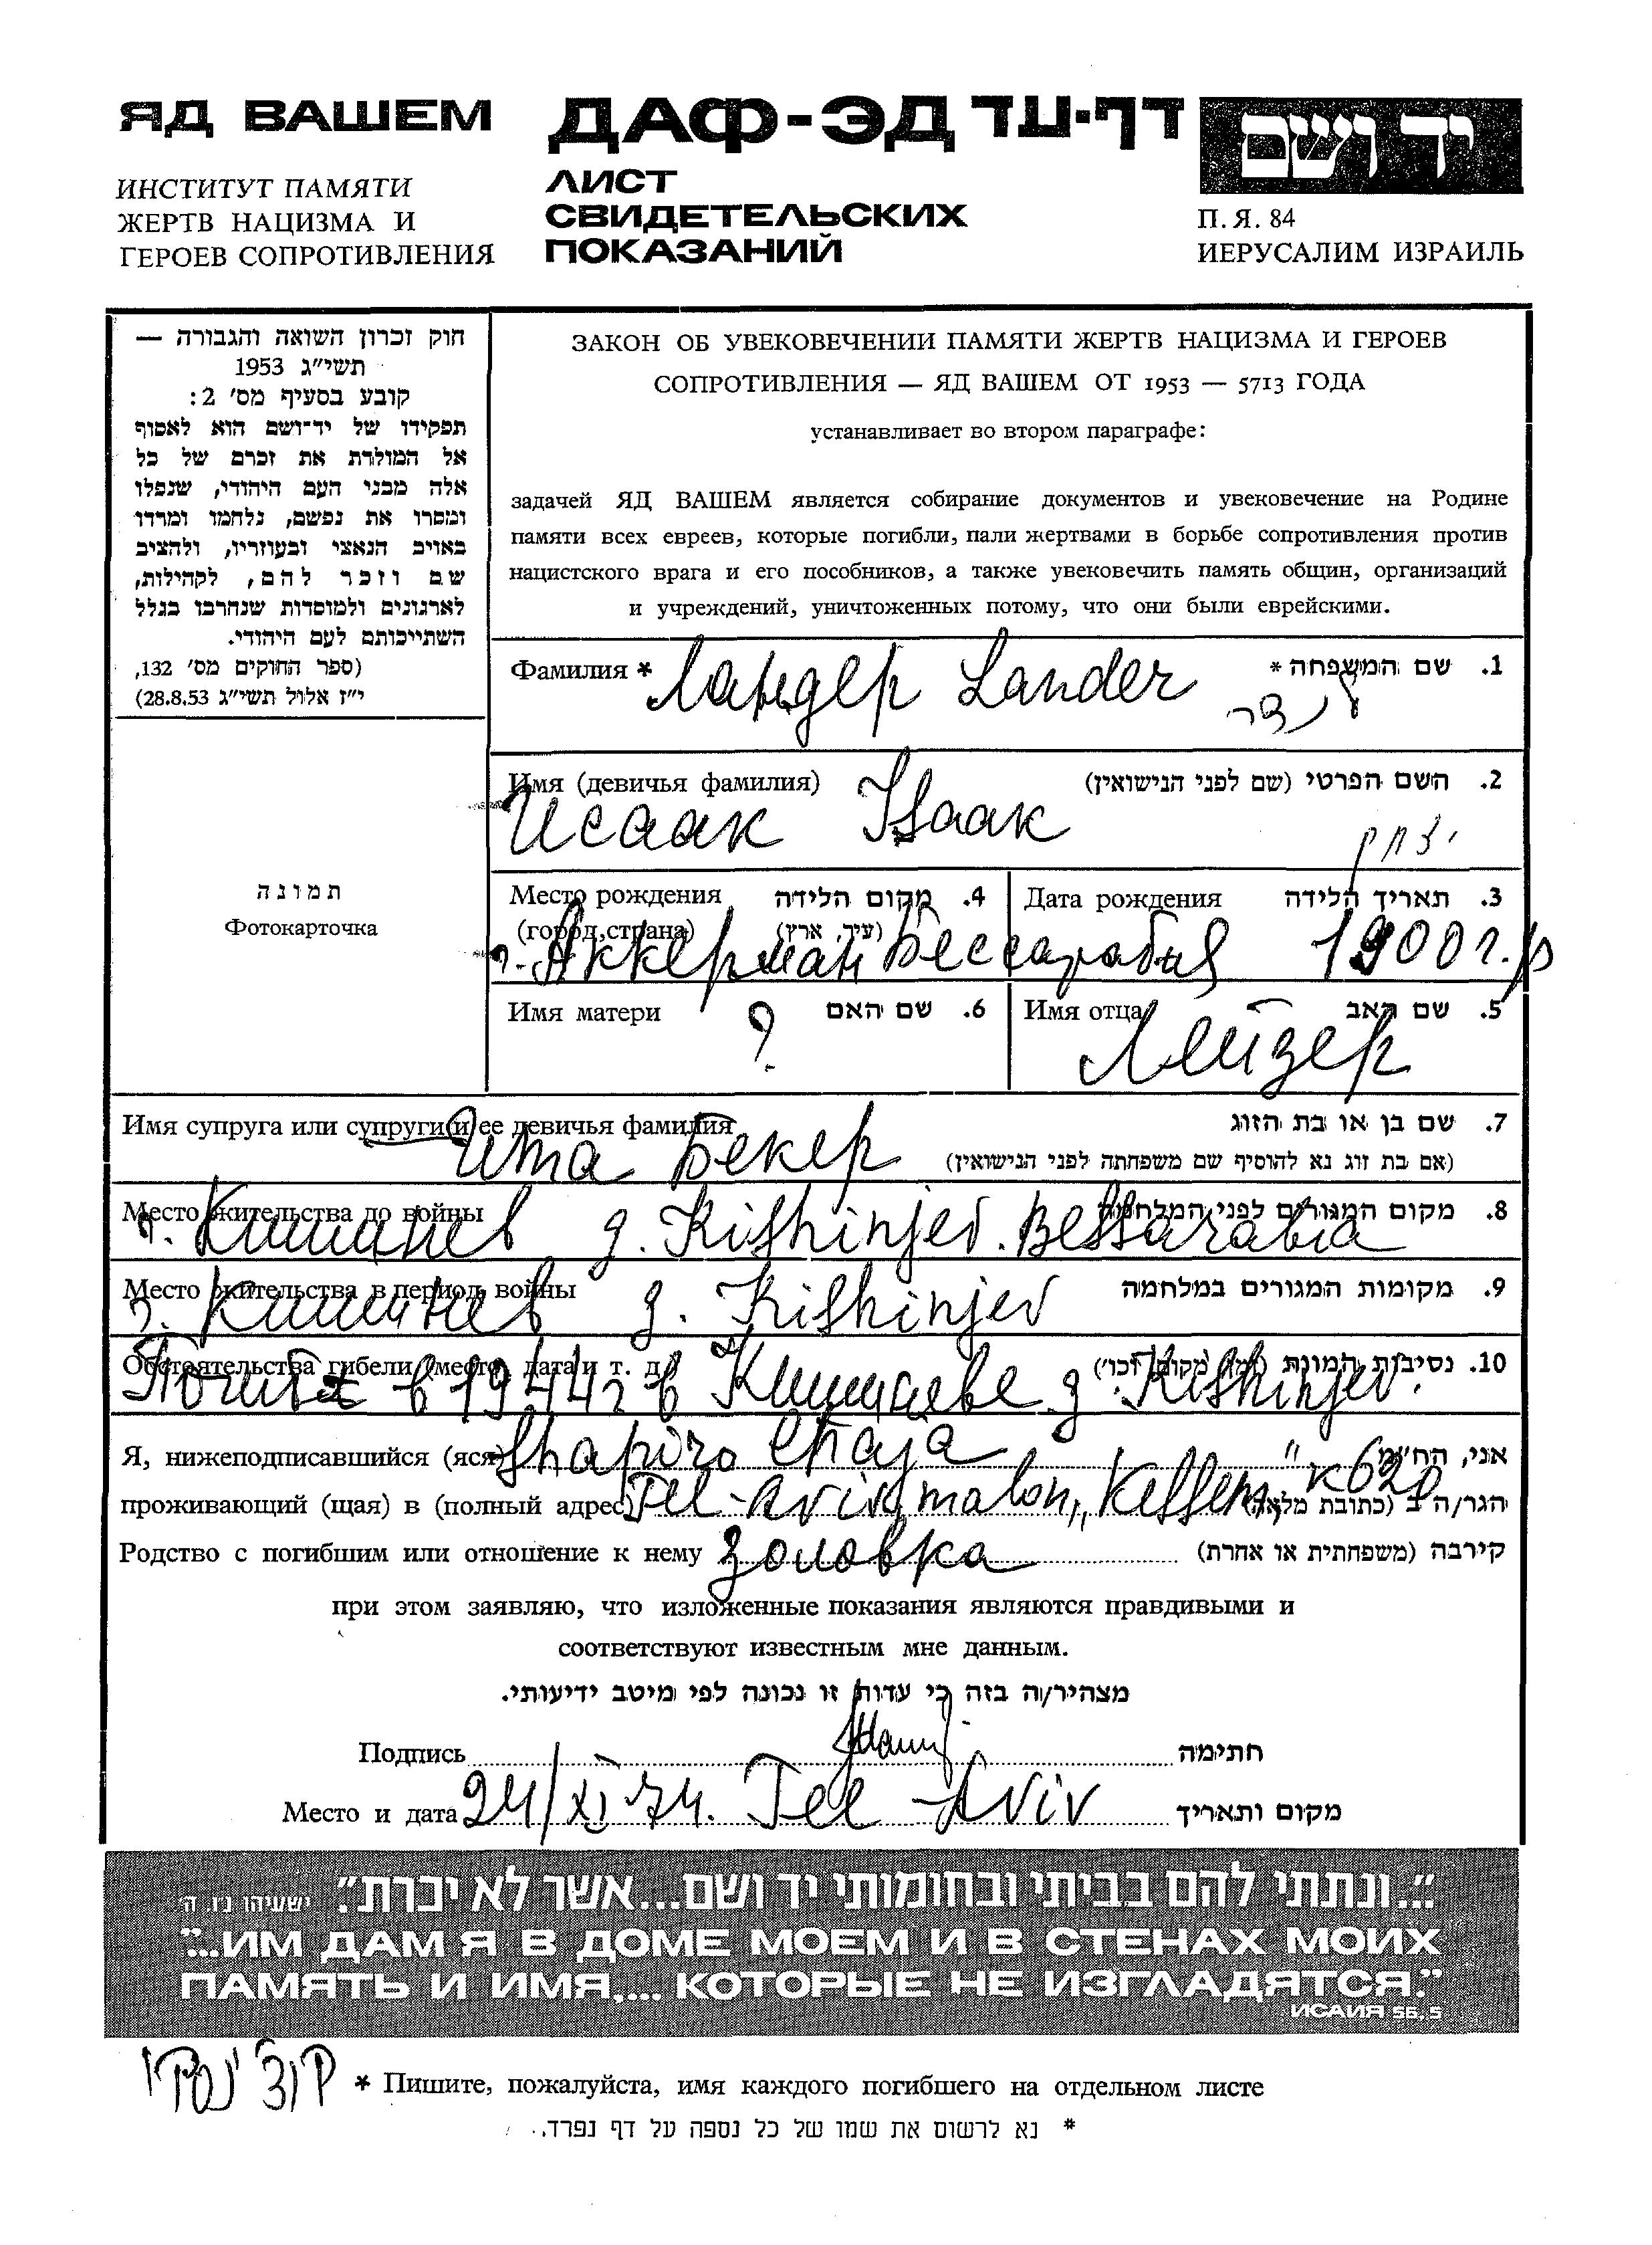 ЯД ВАШЕМ
ИНСТИТУТ ПАМЯТИ
ЖЕРТВ НАЦИЗМА И
ГЕРОЕВ СОПРОТИВЛЕНИЯ
ДАФ-ЭД דף-עד
ЛИСТ
СВИДЕТЕЛЬСКИХ
ПОКАЗАНИЙ
יד ושם
П. Я. 84
ИЕРУСАЛИМ ИЗРАИЛЬ
חוק זכרון השואה והגבורה —
תשי״ג 1953
קובע בסעיף מס׳ 2:
תפקידו של יד־ושם הוא לאסוף
אל המולדת את זכרם של כל
אלה מבני העם היהודי, שנפלו
ומסרו את נפשם, נלחמו ומרדו
באויב הנאצי ובעוזריו, ולהציב
שם וזכר להם, לקהילות,
לארגונים ולמוסדות שנחרבו בגלל
השתייכותם לעם היהודי.
(ספר החוקים מס׳ 132,
י״ז אלול תשי״ג 28.8.53)
ЗАКОН ОБ УВЕКОВЕЧЕНИИ ПАМЯТИ ЖЕРТВ НАЦИЗМА И ГЕРОЕВ
СОПРОТИВЛЕНИЯ — ЯД ВАШЕМ ОТ 1953 — 5713 ГОДА
устанавливает во втором параграфе:
задачей ЯД ВАШЕМ является собирание документов и увековечение на Родине
памяти всех евреев, которые погибли, пали жертвами в борьбе сопротивления против
нацистского врага и его пособников, а также увековечить память общин, организаций
и учреждений, уничтоженных потому, что они были еврейскими.
Фамилия * Ландер Lander 1. שם המשפחה *
לנדר
Имя (девичья фамилия) 2. השם הפרטי (שם לפני הנישואין)
Исаак Isaak יצחק
תמונה
Фотокарточка
Место рождения 4. מקום הלידה
(город, страна) (עיר, ארץ)
г. Аккерман Бессарабия
Дата рождения 3. תאריך הלידה
1900 г.р
Имя матери ? 6. שם האם
Имя отца 5. שם האב
Лейзер
Имя супруга или супруги и ее девичья фамилия 7. שם בן או בת הזוג
Ита Бекер (אם בת זוג נא להוסיף שם משפחתה לפני הנישואין)
Место жительства до войны 8. מקום המגורים לפני המלחמה
г. Кишинев g. Kishinjev. Bessarabia
Место жительства в период войны 9. מקומות המגורים במלחמה
г. Кишинев g. Kishinjev
Обстоятельства гибели (место, дата и т. д.) 10. נסיבות המוות (זמן, מקום, וכו׳)
Погиб в 1944г в Кишиневе g. Kishinjev.
Я, нижеподписавшийся (яся) Shapiro Chaja אני, הח״מ
проживающий (щая) в (полный адрес) Tel-Aviv, malon „Kessem" к 620 הגר/ה ב (כתובת מלאה)
Родство с погибшим или отношение к нему золовка קירבה (משפחתית או אחרת)
при этом заявляю, что изложенные показания являются правдивыми и
соответствуют известным мне данным.
מצהיר/ה בזה כי עדות זו נכונה לפי מיטב ידיעותי.
Подпись חתימה
Место и дата 24/XI 74. Tel-Aviv מקום ותאריך
„...ונתתי להם בביתי ובחומותי יד ושם...אשר לא יכרת". ישעיהו נ״ו. ה׳
"...ИМ ДАМ Я В ДОМЕ МОЕМ И В СТЕНАХ МОИХ
ПАМЯТЬ И ИМЯ,... КОТОРЫЕ НЕ ИЗГЛАДЯТСЯ."
ИСАИЯ 56, 5
* Пишите, пожалуйста, имя каждого погибшего на отдельном листе
* נא לרשום את שמו של כל נספה על דף נפרד.